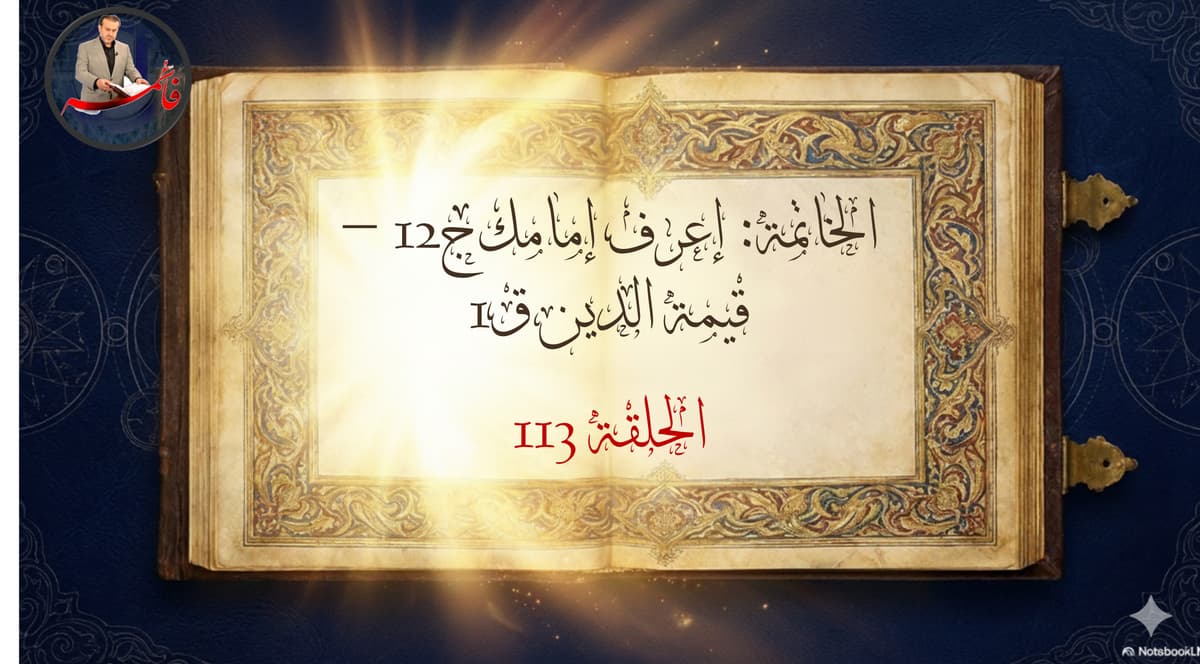 فاطمـة
الخاتمة: إعرف إمامك ج12 –
قيمة الدين ق1
الحلقة 113
NotsbookLM